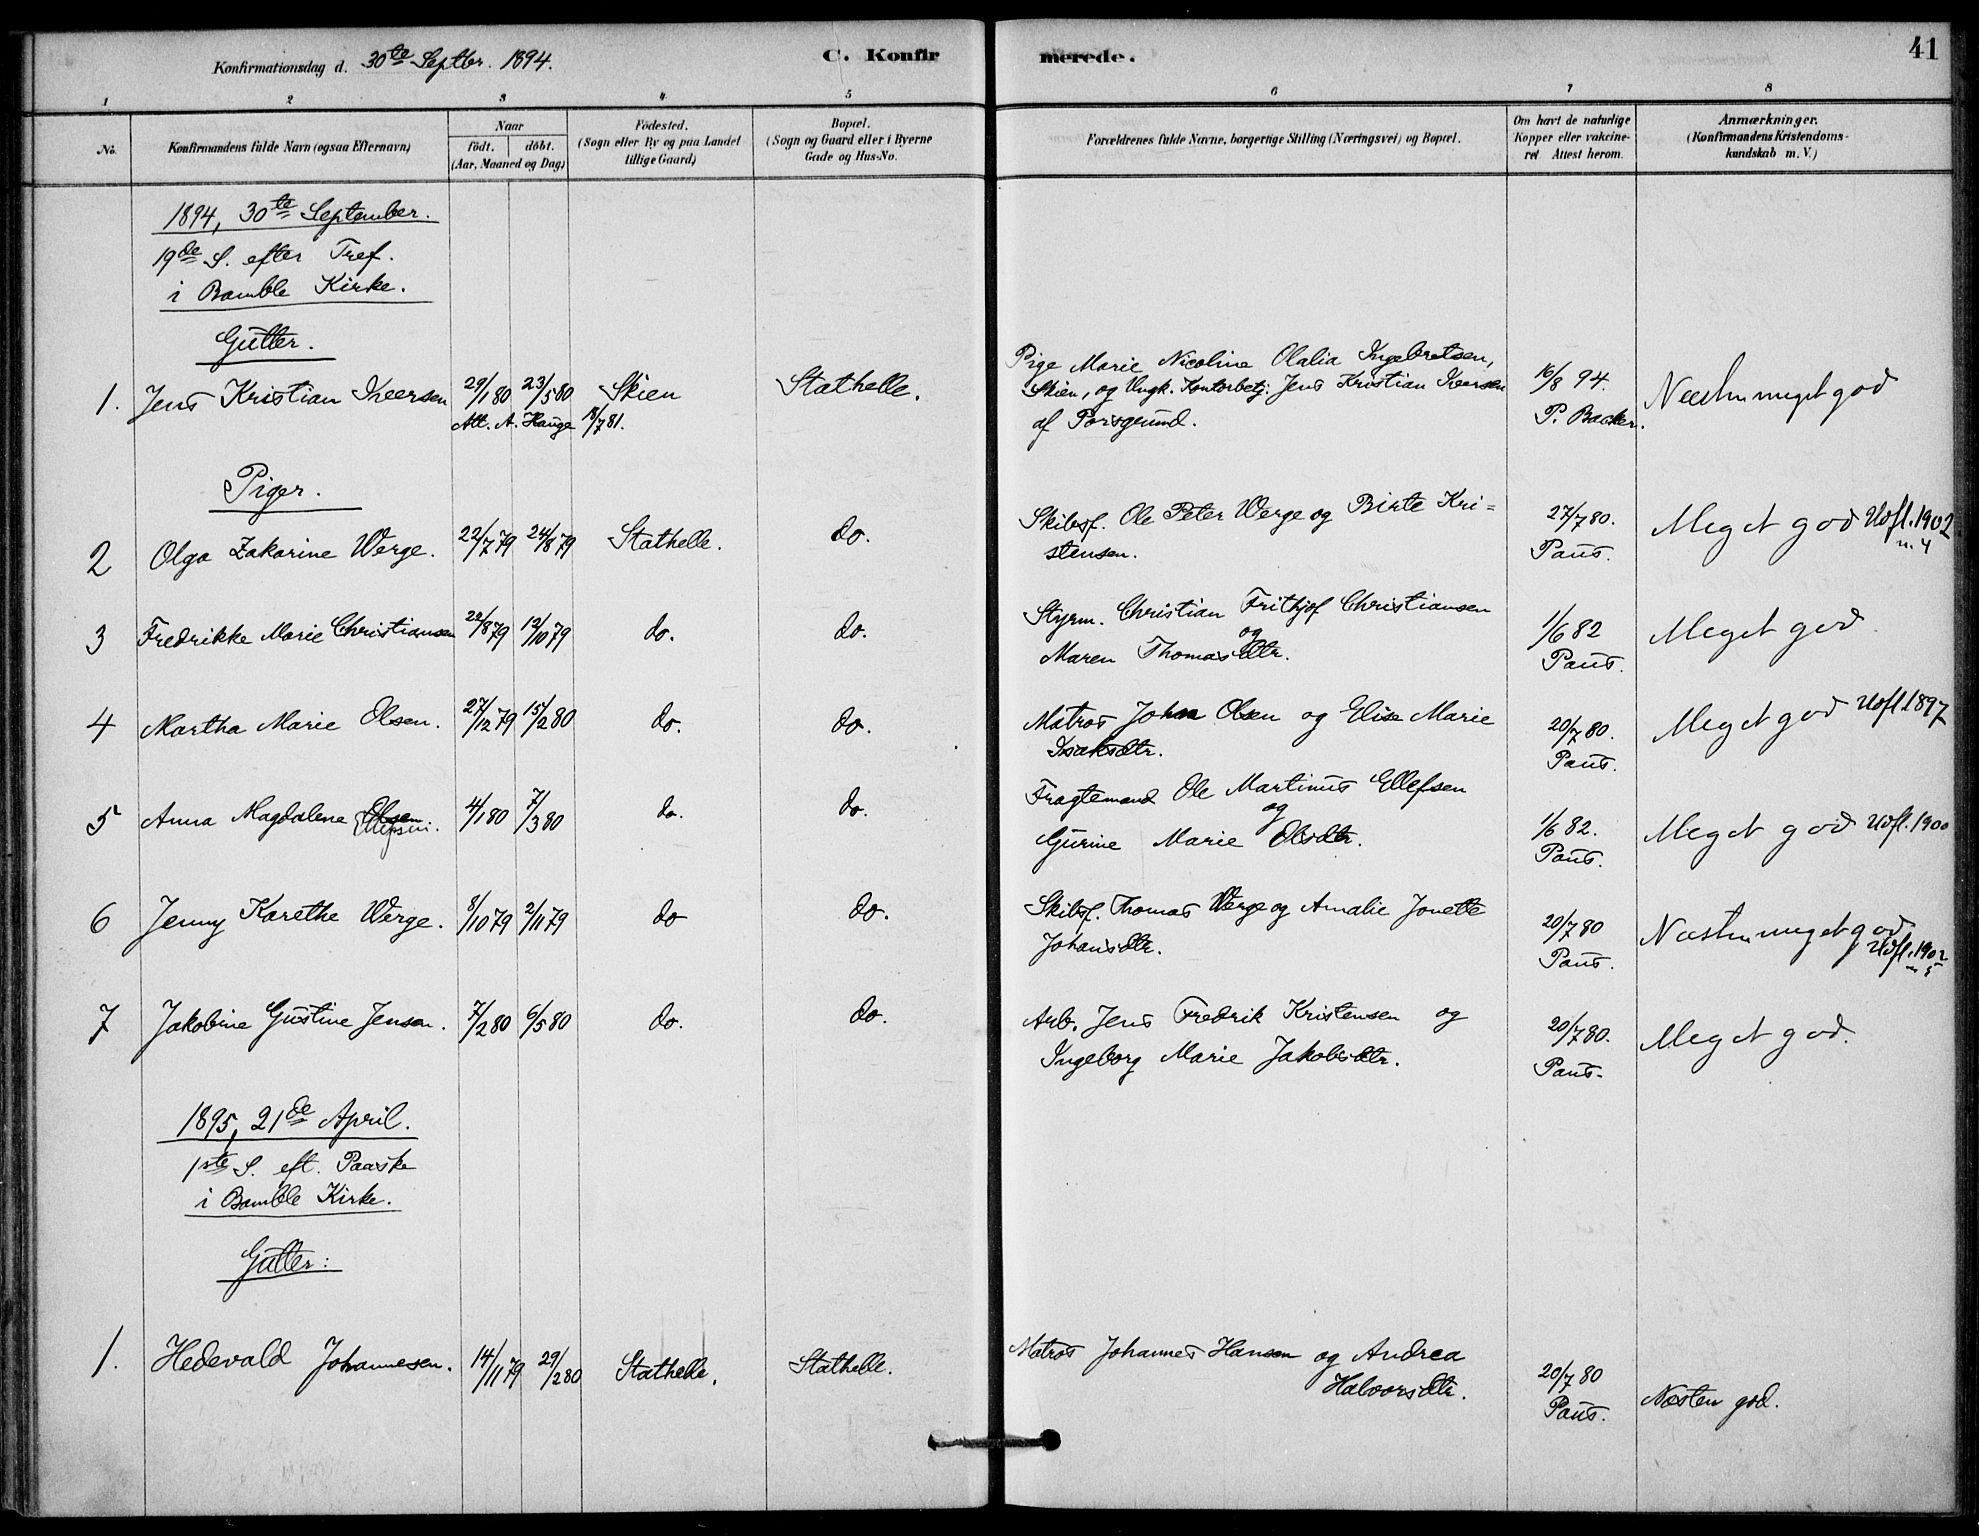 Konfirmationsdag d. 30te Septbr. 1894.
C. Konfirmerede.
41
1 2 3 4 5 6 7 8
No.
Konfirmandens fulde Navn (ogsaa Efternavn)
Naar
födt. döbt.
(Aar, Maaned og Dag)
Födested.
(Sogn eller By og paa Landet
tillige Gaard)
Bopæl.
(Sogn og Gaard eller i Byerne
Gade og Hus-No.
Forældrenes fulde Navne, borgerlige Stilling (Næringsvei) og Bopæl.
Om havt de naturlige
Kopper eller vakcine-
ret Attest herom.
Anmærkninger.
(Konfirmandens Kristendoms-
kundskab m. V.)
1894, 30te September.
19de S. efter Tref.
i Bamble Kirke.
Gutter.
1. Jens Kristian Iversen 29/1 80 23/5 80 Skien Stathelle.
Att. A. Hauge 18/7 81.
Pige Marie Nicoline Olalia Ingebretsen,
Skien, og Ungk. Kontorbetj. Jens Kristian Iversen
af Porsgrund.
16/8 94.
P. Backer.
Næsten meget god
Piger.
2 Olga Zakarine Werge. 22/7 79 24/8 79 Stathelle. do.
Skibsf. Ole Peter Werge og Birte Kri=
stensen.
27/7 80.
Paus.
Meget god Udfl. 1902
n. 4
3 Fredrikke Marie Christiansen 22/8 79 12/10 79 do. do.
Styrm. Christian Frithjof Christiansen
og
Maren Thomasdtr.
1/6 82
Paus.
Meget god.
4 Martha Marie Olsen. 27/12 79 15/2 80 do. do.
Matros Johan Olsen og Elise Marie
Isaksdtr.
20/7 80.
Paus.
Meget god Udfl. 1897
5 Anna Magdalene Olsen 4/1 80 7/3 80 do. do.
Ellefsen.
Fragtemand Ole Martinus Ellefsen
og
Gurine Marie Olsdtr.
1/6 82.
Paus.
Meget god Udfl. 1900
6 Jenny Karethe Werge. 8/10 79 2/11 79 do do.
Skibsf. Thomas Werge og Amalie Jonette
Johansdtr.
20/7 80
Paus.
Næsten meget god
Udfl. 1902
n 5
7 Jakobine Gustine Jensen. 7/2 80 6/5 80 do. do.
Arb. Jens Fredrik Kristensen og
Ingeborg Marie Jakobsdtr.
20/7 80.
Paus.
Meget god.
1895, 21de April.
1ste S. eft. Paaske
i Bamble Kirke.
Gutter:
1. Hedevald Johannesen. 14/11 79 29/2 80 Stathelle. Stathelle.
Matros Johannes Hansen og Andrea
Halvorsdtr.
20/7 80
Paus.
Næsten god.